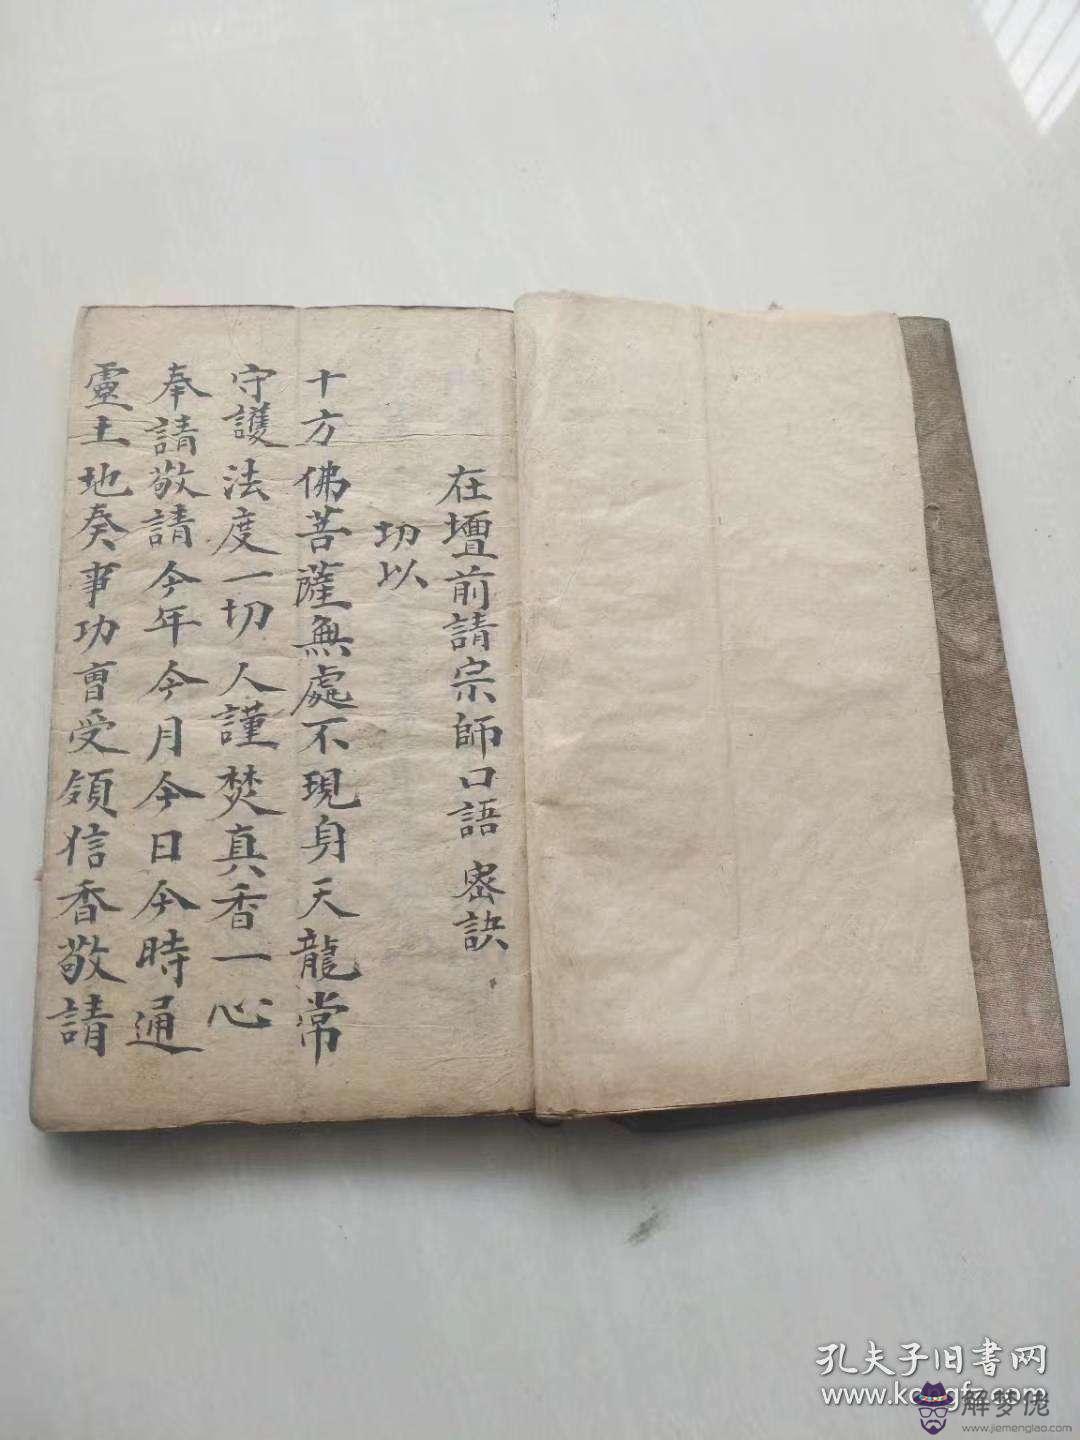 在壇前請宗師口語 密訣
切以
十方佛菩薩無處不現身天龍常
守護法度一切人謹焚真香一心
奉請敬請今年今月今日今時通
靈土地奏事功曹受領信香敬請
孔夫子旧书网
www.kongfz.com
解梦佬
www.jiemenglao.com